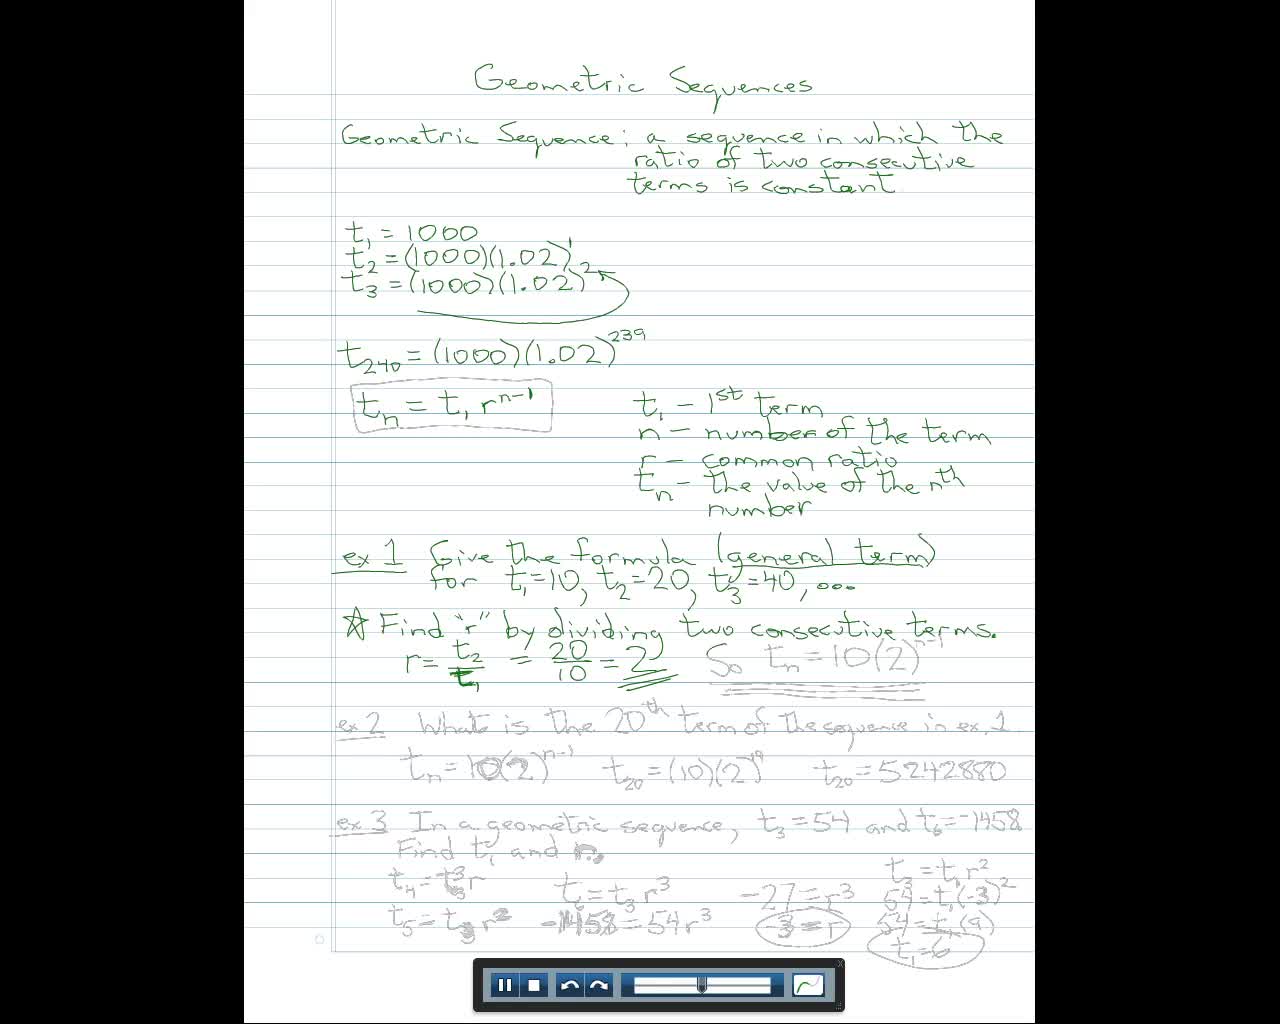 Geometric Sequences
Geometric Sequence: a sequence in which the
ratio of two consecutive
terms is constant
t₁ = 1000
t₂ = (1000)(1.02)¹
t₃ = (1000)(1.02)²
t₂₄₀ = (1000)(1.02)²³⁹
tₙ = t₁ rⁿ⁻¹
t₁ – 1ˢᵗ term
n – number of the term
r – common ratio
tₙ – the value of the nᵗʰ
number
ex 1 Give the formula (general term)
for t₁=10, t₂=20, t₃=40, ...
☆ Find "r" by dividing two consecutive terms.
r = t₂/t₁ = 20/10 = 2 So tₙ = 10(2)ⁿ⁻¹
ex 2 What is the 20ᵗʰ term of the sequence in ex. 1
tₙ = 10(2)ⁿ⁻¹ t₂₀ = (10)(2)¹⁹ t₂₀ = 5242880
ex 3 In a geometric sequence, t₃ = 54 and t₆ = -1458.
Find t₁ and r.
t₄ = t₃r t₆ = t₃r³ -27 = r³ t₃ = t₁r²
t₅ = t₃r² -1458 = 54r³ -3 = r 54 = t₁(-3)²
54 = t₁(9)
t₁ = 6